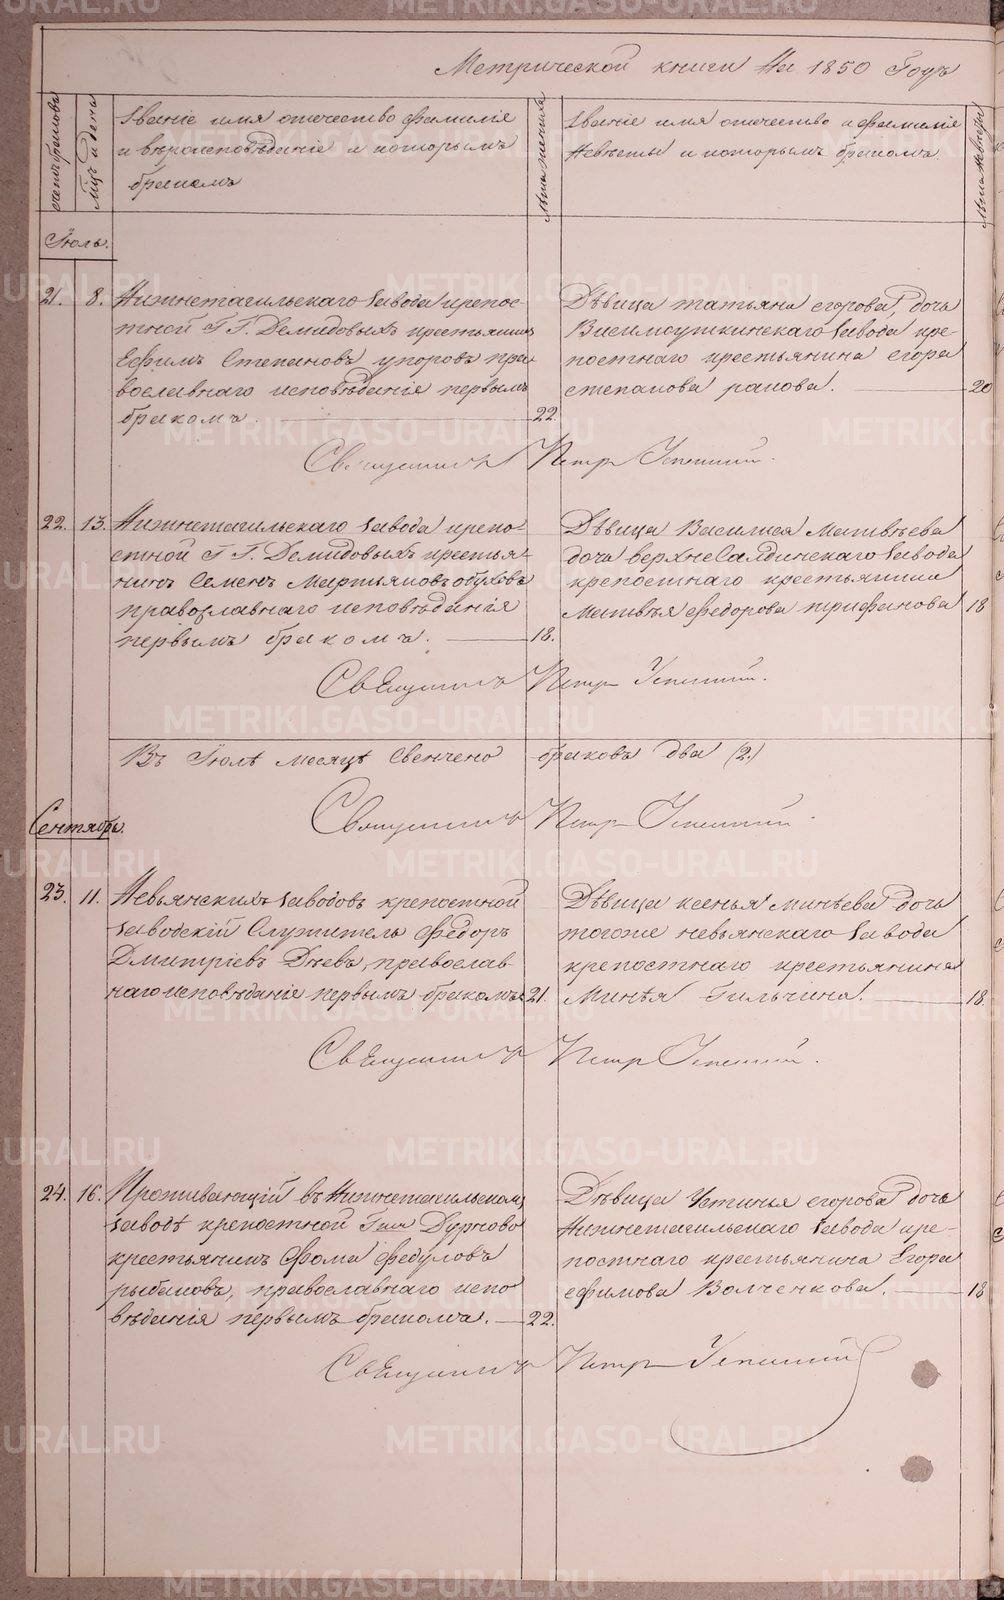 Метрической книги На 1850 Годъ
счетъ браковъ
Мцъ и день
Званіе имя отечество фамилія
и вѣроисповѣданіе и которымъ
бракомъ
Лѣта жениха
Званіе имя отечество и фамилія
Невѣсты и которымъ бракомъ.
Лѣта невѣсты
Іюль.
21. 8. Нижнетагильскаго завода крепос-
тной Г. Г. Демидовыхъ крестьянинъ
Ефимъ Степановъ упоровъ пра
вославнаго исповѣданія первымъ
бракомъ. 22
Дѣвица татьяна егорова, дочь
Висимоуткинскаго завода кре-
постнаго крестьянина егора
степанова ракова. 20
Священникъ Петръ Успенский.
22. 13. Нижнетагильскаго завода крепо-
стной Г. Г. Демидовыхъ крестья
нинъ Семенъ Мартьяновъ обуховъ
православнаго исповѣданія
первымъ бракомъ. 18.
Дѣвица Василиса Матвѣева
дочь верхнеСалдинскаго завода
крепостнаго крестьянина
Матвѣя федорова трифанова 18
Священникъ Петръ Успенский.
Въ Іюлѣ месяцѣ Свенчено браковъ два (2.)
Священникъ Петръ Успенский.
Сентябрь.
23. 11. Невьянскихъ заводовъ крепостной
заводскій Служитель Федоръ
Дмитріевъ Дневъ, православ-
наго исповѣданіе первымъ бракомъ 21.
Дѣвица ксенья Минѣева дочь
тогоже невьянскаго завода
крепостнаго крестьянина
Минѣя Гильчина. 18.
Священникъ Петръ Успенский.
24. 16. Проживающій въ Нижнетагильскомъ
заводѣ крепостной Гжи Дурново
крестьянинъ Фома Федуловъ
рыбаковъ, православнаго испо
вѣданія первымъ бракомъ. 22.
Дѣвица Устинья егорова дочь
Нижнетагильскаго завода кре-
постнаго крестьянина Егора
ефимова Волченкова. 18
Священникъ Петръ Успенский
METRIKI.GASO-URAL.RU